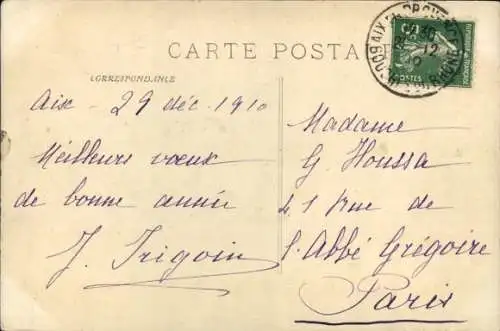 CARTE POSTALE
CORRESPONDANCE
Aix - 29 déc. 1910
Meilleurs vœux
de bonne année
J. Trigoin
Madame
G Houssa
41 Rue de
l'Abbé Grégoire
Paris
AIX EN PROVENCE
POSTES